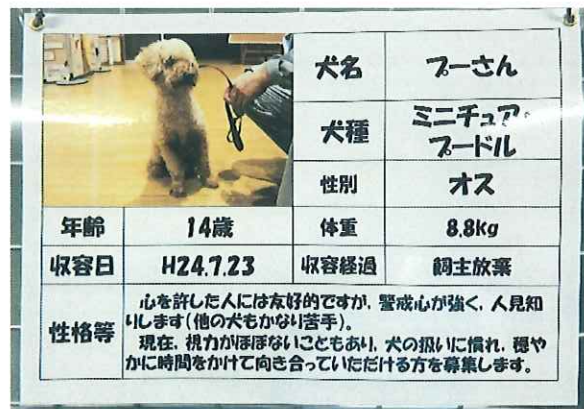 犬名 プーさん
犬種 ミニチュア・
プードル
性別 オス
年齢 14歳 体重 8.8kg
収容日 H24.7.23 収容経過 飼主放棄
性格等
心を許した人には友好的ですが、警戒心が強く、人見知
りします(他の犬もかなり苦手)。
現在、視力がほぼないこともあり、犬の扱いに慣れ、穏や
かに時間をかけて向き合っていただける方を募集します。